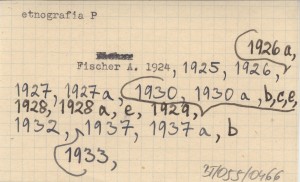 etnografia P
1926a,
Fischer A. 1924, 1925, 1926,
1927, 1927a, 1930, 1930a, b, c, e,
1928, 1928a, e, 1929,
1932, 1937, 1937a, b
1933,